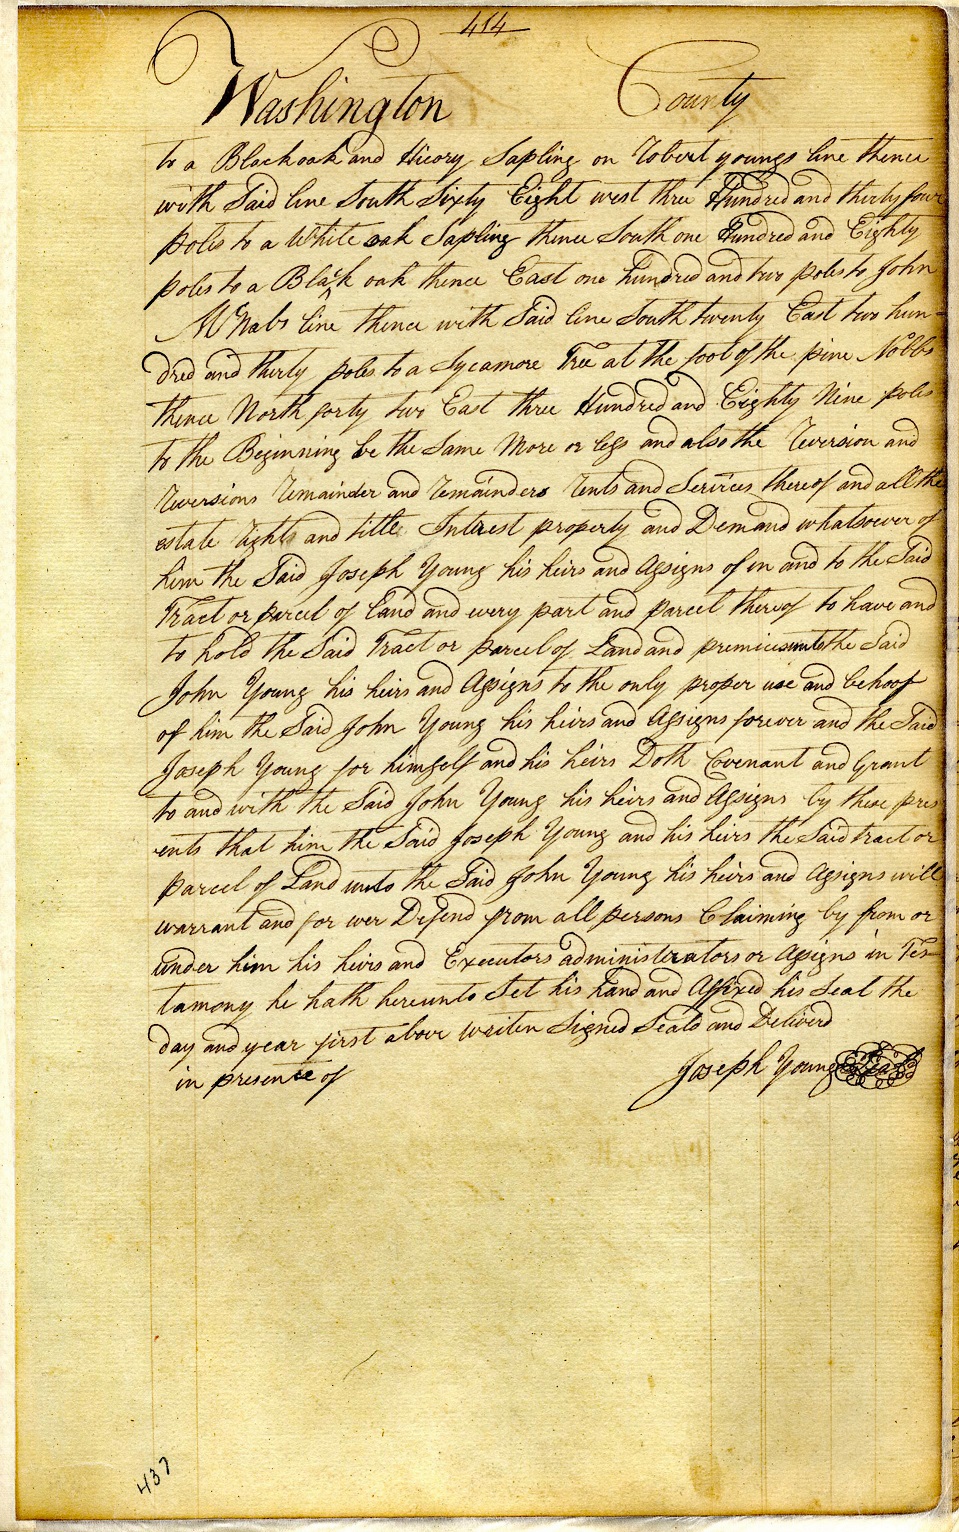 414
Washington County
to a Blackoak and Hicory Sapling on Robert youngs line thence
with Said line South Sixty Eight west three Hundred and thirty four
poles to a White oak Sapling thence South one Hundred and Eighty
poles to a Black oak thence East one hundred and two poles to John
McNabs line thence with Said line South twenty East two hun=
dred and thirty poles to a Sycamore Tree at the foot of the pine Nobbs
thence North forty two East three Hundred and Eighty Nine poles
to the Beginning be the Same More or less and also the Reversion and
Reversions Remainder and Remainders Rents and Services thereof and all the
estate rights and title Interest property and Demand whatsoever of
him the Said Joseph Young his heirs and Assigns of in and to the Said
Tract or parcel of Land and every part and parcel thereof to have and
to hold the Said Tract or parcel of Land and premices unto the Said
John Young his heirs and Assigns to the only proper use and behoof
of him the Said John Young his heirs and Assigns forever and the Said
Joseph Young for himself and his heirs Doth Covenant and Grant
to and with the Said John Young his heirs and Assigns by these pres
ents that him the Said Joseph Young and his heirs the Said tract or
parcel of Land unto the Said John Young his heirs and Assigns will
warrant and for ever Defend from all persons Claiming by from or
under him his heirs and Executors administrators or Assigns in Tes=
tamony he hath hereunto Set his hand and Affixed his Seal the
day and year first above writen Signed Seald and Deliverd
in presence of Joseph Young Seal
437